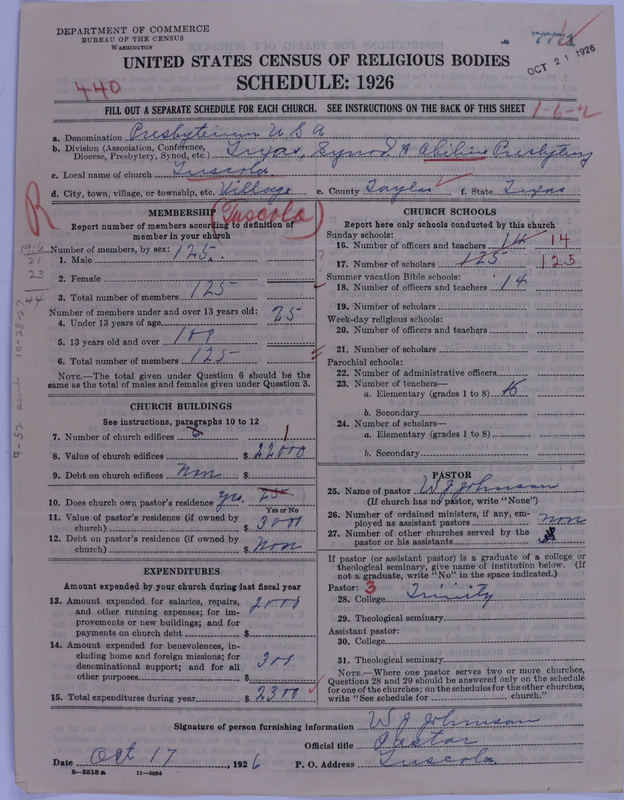 DEPARTMENT OF COMMERCE
BUREAU OF THE CENSUS
WASHINGTON
OCT 21 1926
UNITED STATES CENSUS OF RELIGIOUS BODIES
SCHEDULE: 1926
440
FILL OUT A SEPARATE SCHEDULE FOR EACH CHURCH. SEE INSTRUCTIONS ON THE BACK OF THIS SHEET
1-6-2
a. Denomination Presbyterian U S A
b. Division (Association, Conference, Diocese, Presbytery, Synod, etc.) Texas, Synod & Abiline Presbytery
c. Local name of church Tuscola
d. City, town, village, or township, etc. Village e. County Taylor f. State Texas
R
MEMBERSHIP (Tuscola)
Report number of members according to definition of
member in your church
1916
21
23
44
Number of members, by sex:
1. Male 125.
2. Female
3. Total number of members 125
Number of members under and over 13 years old:
4. Under 13 years of age 25
5. 13 years old and over 100
6. Total number of members 125
NOTE.—The total given under Question 6 should be
same as the total of males and females given under Question 3.
CHURCH BUILDINGS
See instructions, paragraphs 10 to 12
7. Number of church edifices 1
8. Value of church edifices $ 22000
9. Debt on church edifices Non $
10. Does church own pastor's residence Yes.
Yes or No
11. Value of pastor's residence (if owned by
church) $ 3000
12. Debt on pastor's residence (if owned by
church) $ Non
EXPENDITURES
Amount expended by your church during last fiscal year
13. Amount expended for salaries, repairs,
and other running expenses; for im-
provements or new buildings; and for
payments on church debt $ 2000
14. Amount expended for benevolences, in-
cluding home and foreign missions; for
denominational support; and for all
other purposes $ 300
15. Total expenditures during year $ 2300
CHURCH SCHOOLS
Report here only schools conducted by this church
Sunday schools:
16. Number of officers and teachers 14 14
17. Number of scholars 125 125
Summer vacation Bible schools:
18. Number of officers and teachers 14
19. Number of scholars
Week-day religious schools:
20. Number of officers and teachers
21. Number of scholars
Parochial schools:
22. Number of administrative officers
23. Number of teachers—
a. Elementary (grades 1 to 8)
b. Secondary
24. Number of scholars—
a. Elementary (grades 1 to 8)
b. Secondary
PASTOR
25. Name of pastor W J Johnson
(If church has no pastor, write "None")
26. Number of ordained ministers, if any, em-
ployed as assistant pastors Non
27. Number of other churches served by the
pastor or his assistants
If pastor (or assistant pastor) is a graduate of a college or
theological seminary, give name of institution below. (If
not a graduate, write "No" in the space indicated.)
Pastor: 3
28. College Trinity
29. Theological seminary
Assistant pastor:
30. College
31. Theological seminary
NOTE.—Where one pastor serves two or more churches,
Questions 28 and 29 should be answered only on the schedule
for one of the churches; on the schedules for the other churches,
write "See schedule for church."
Signature of person furnishing information W J Johnson
Official title Pastor
Date Oct 17, 1926 P. O. Address Tuscola
8-5518a 11-9054